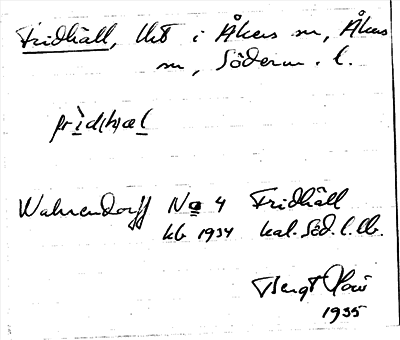 Fridhäll, lht i Åkers sn, Åkers
sn, Söderm. l.
frìd(h)æl
Wahrendorff No 4 Fridhäll
kb 1934 kal. Söd. l. lb.
Bengt
1935